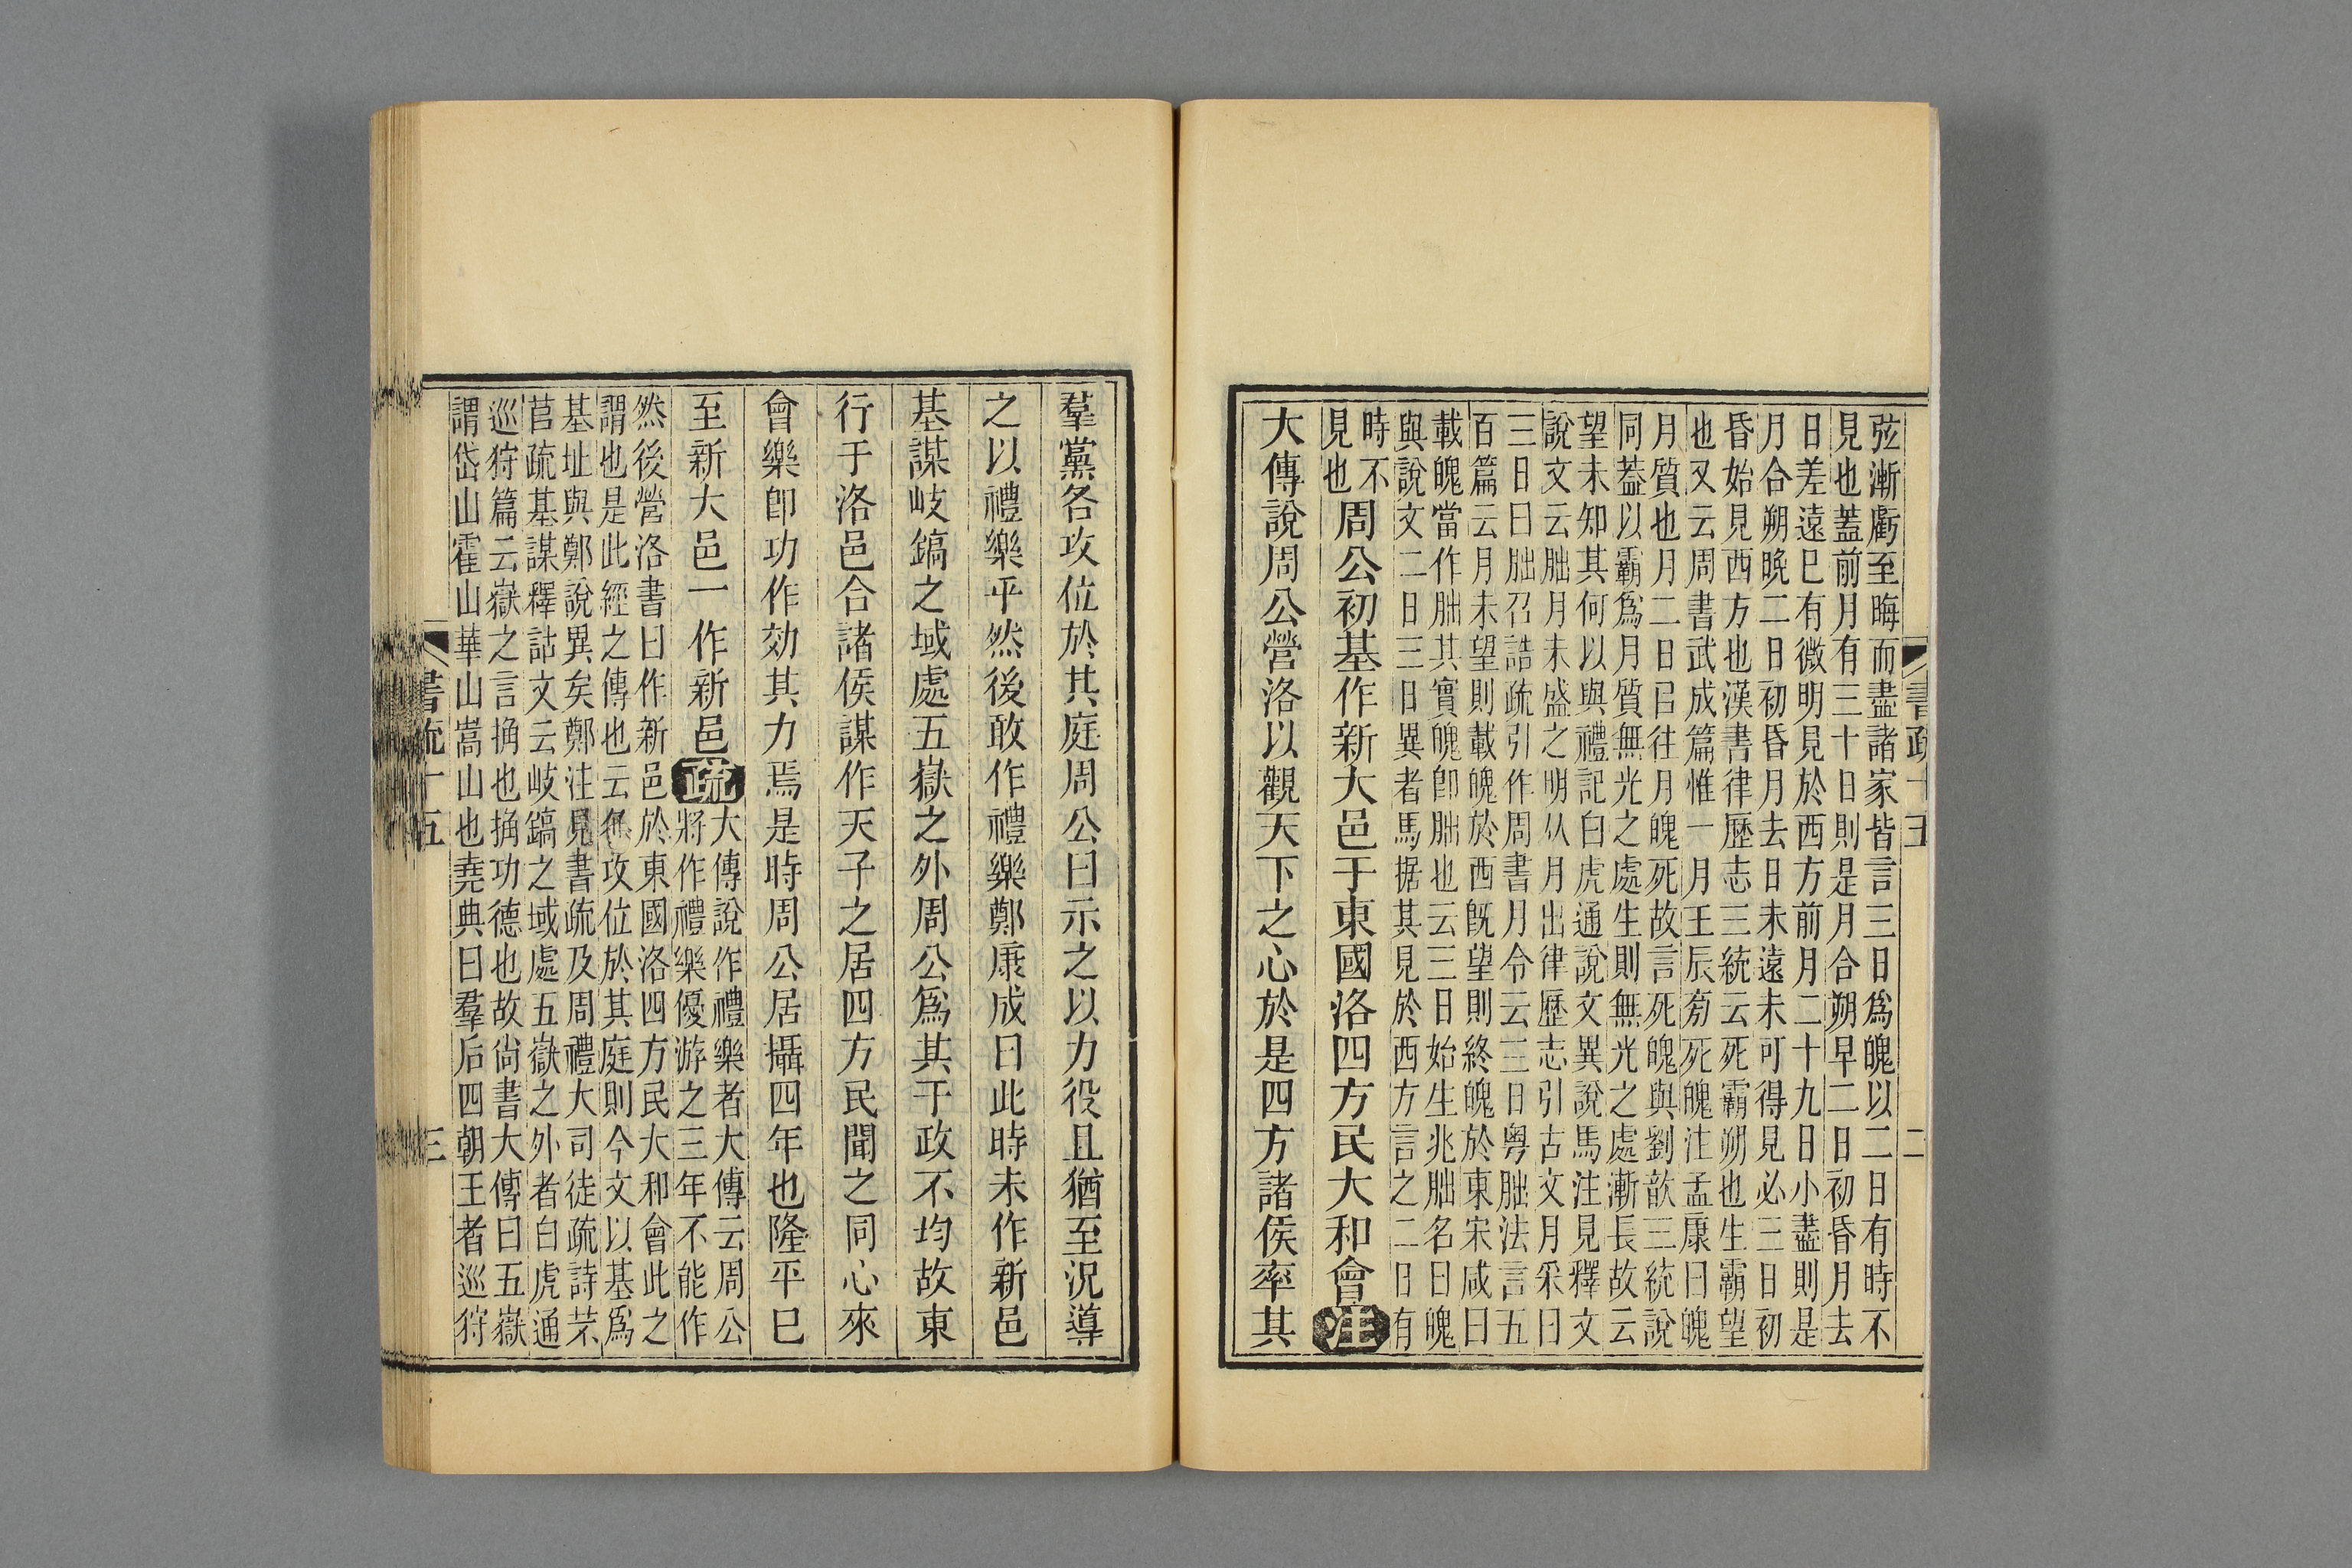 書疏十五
二
弦漸虧至晦而盡諸家皆言三日爲魄以二日有時不
見也蓋前月有三十日則是月合朔早二日初昏月去
日差遠巳有微明見於西方前月二十九日小盡則是
月合朔晚二日初昏月去日未遠未可得見必三日初
昏始見西方也漢書律歷志三統云死霸朔也生霸望
也又云周書武成篇惟一月王辰菊死魄注孟康曰魄
月質也月二日已往月魄死故言死魄與劉歆三統說
同葢以霸爲月質無光之處生則無光之處漸長故云
望未知其何以與禮記白虎通說文異說馬注見釋文
說文云朏月未盛之明从月出律歷志引古文月采曰
三日曰朏召誥疏引作周書月令云三日粤朏法言五
百篇云月未望則載魄於西旣望則終魄於東宋咸曰
載魄當作朏其實魄卽朏也云三日始生兆朏名曰魄
與說文二日三日異者馬据其見於西方言之二日有
時不
見也周公初基作新大邑于東國洛四方民大和會注
大傳說周公營洛以觀天下之心於是四方諸侯率其
羣黨各攻位於其庭周公曰示之以力役且猶至況導
之以禮樂乎然後敢作禮樂鄭康成曰此時未作新邑
基謀岐鎬之域處五嶽之外周公爲其于政不均故東
行于洛邑合諸侯謀作天子之居四方民聞之同心來
會樂卽功作効其力焉是時周公居攝四年也隆平已
至新大邑一作新邑疏大傳說作禮樂者大傳云周公
將作禮樂優游之三年不能作
然後營洛書曰作新邑於東國洛四方民大和會此之
謂也是此經之傳也云各攻位於其庭則今文以基爲
基址與鄭說異矣鄭注見書疏及周禮大司徒疏詩芣
苢疏基謀釋詁文云岐鎬之域處五嶽之外者白虎通
巡狩篇云嶽之言捔也捔功德也故尙書大傳曰五嶽
謂岱山霍山華山嵩山也堯典曰羣后四朝王者巡狩
書疏十五
三